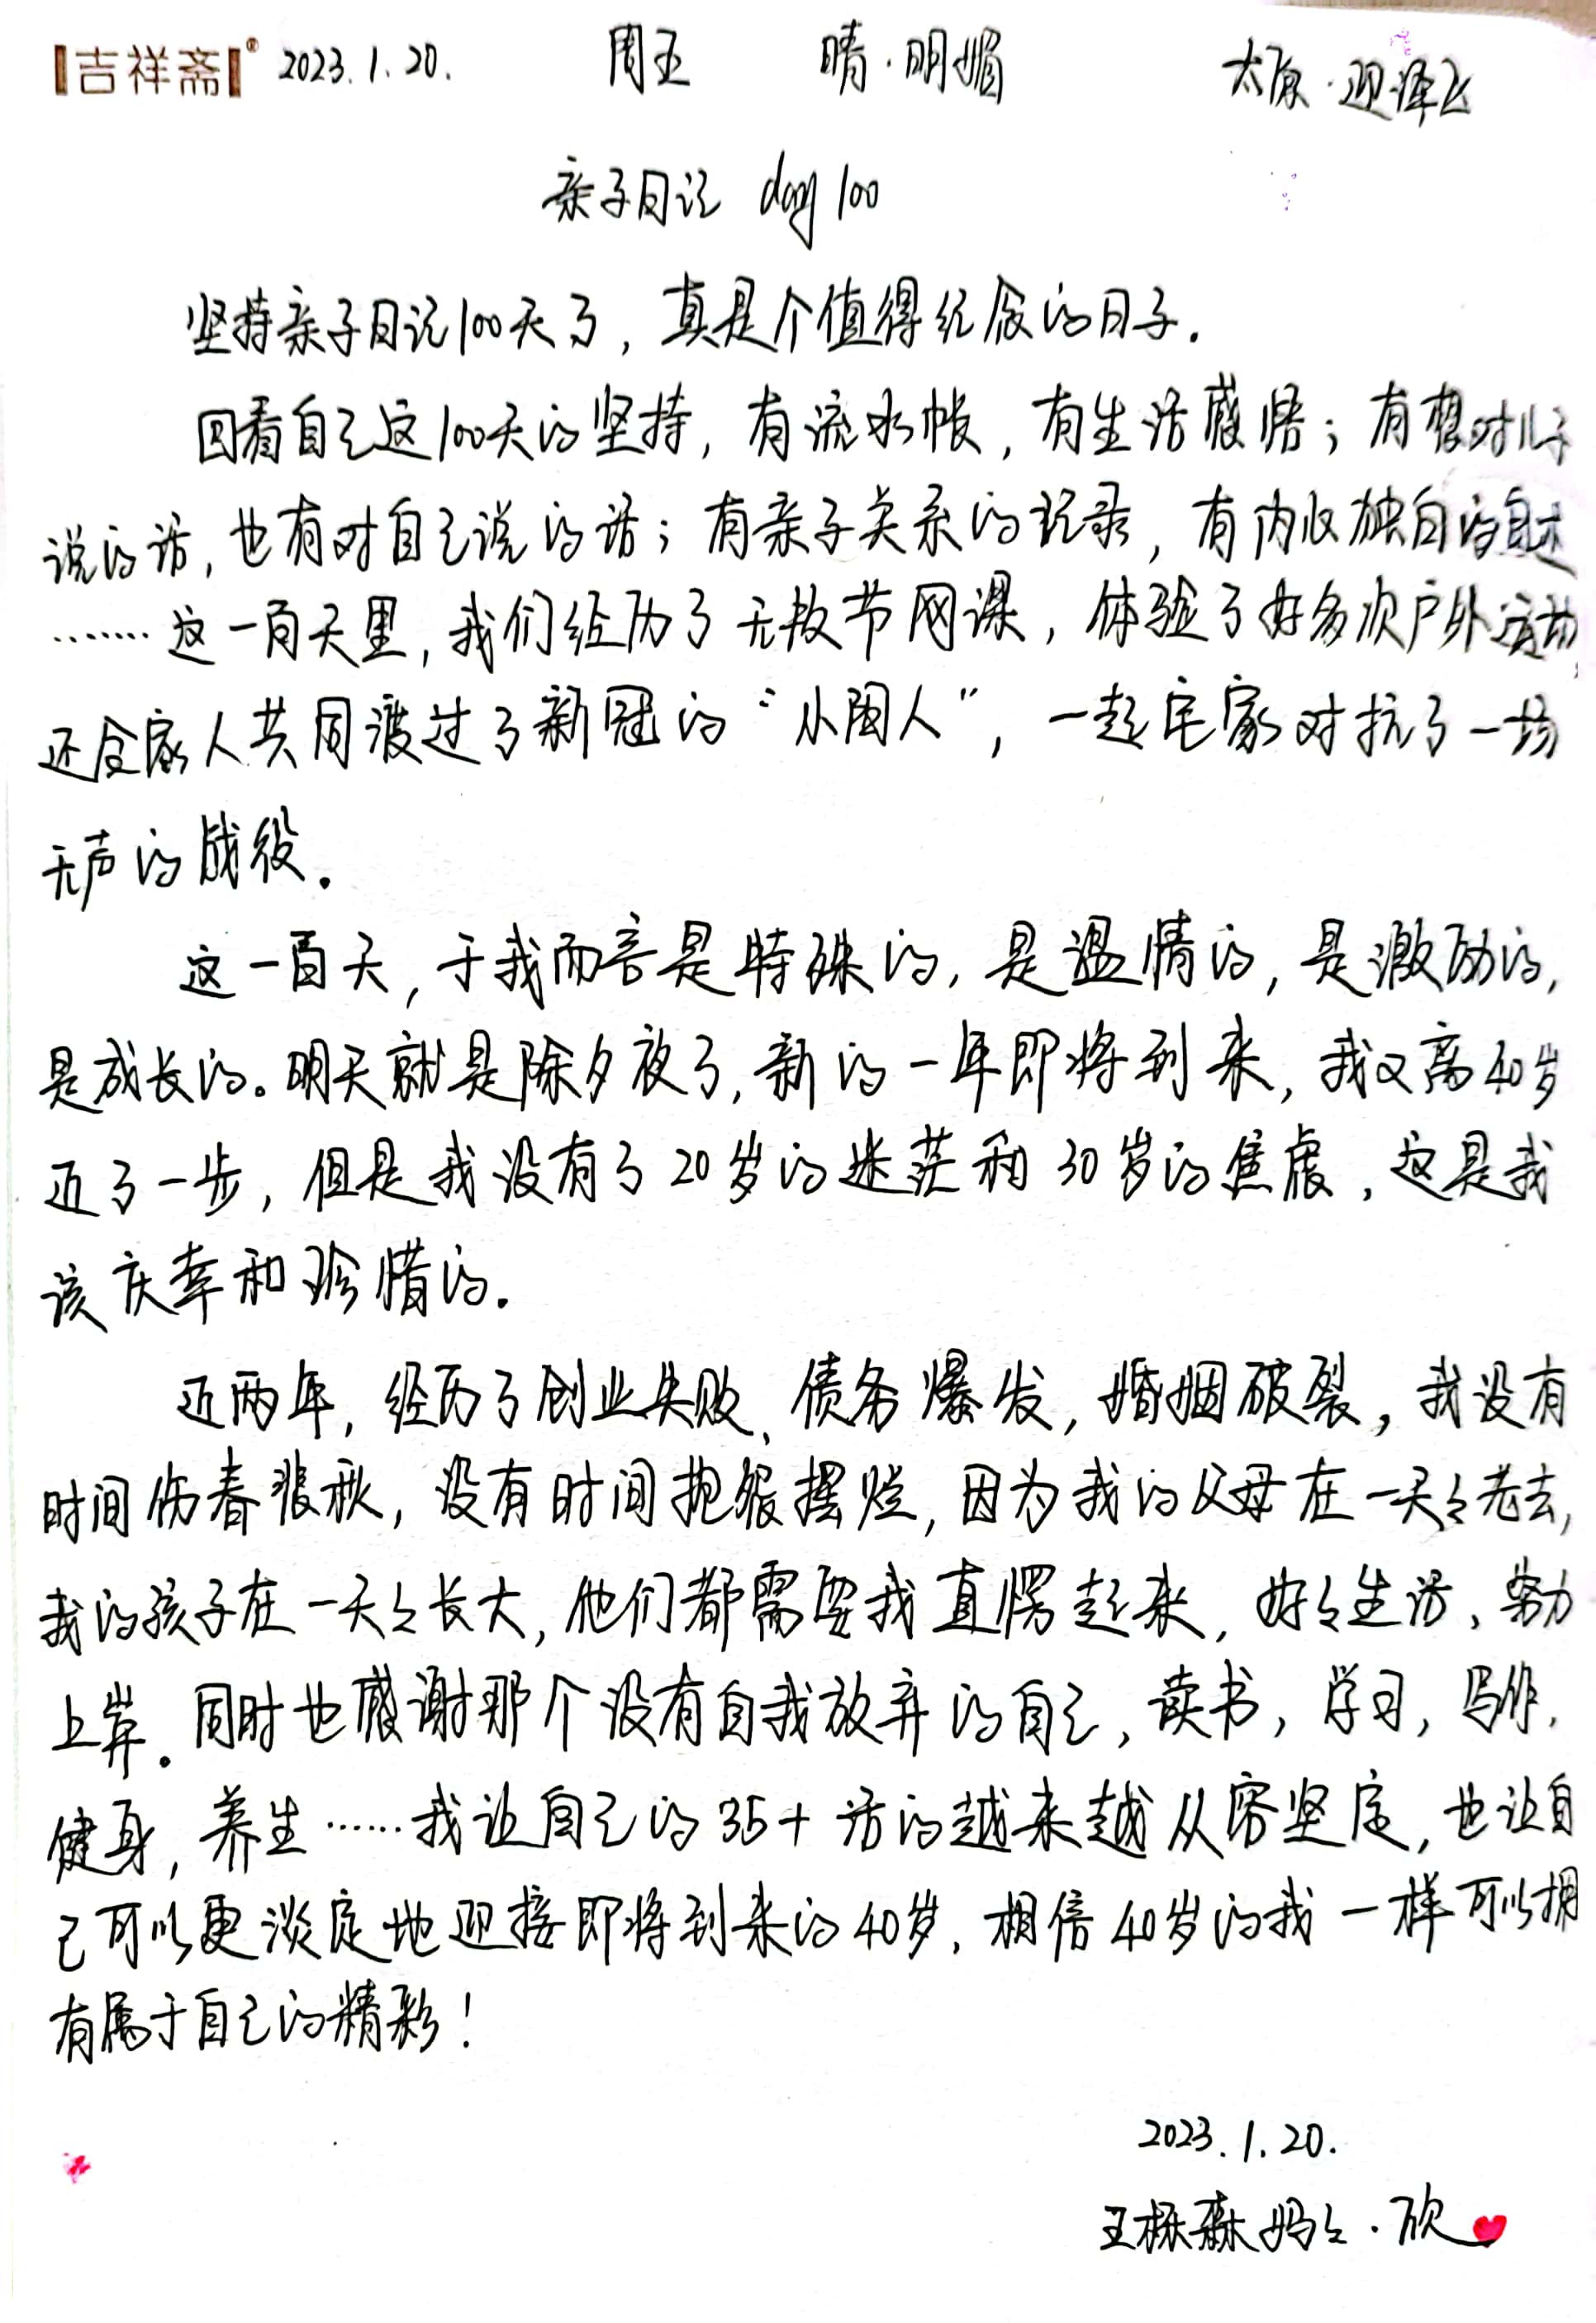 吉祥斋® 2023.1.20. 周五 晴·明媚 太原·迎泽
亲子日记 day 100
坚持亲子日记100天了，真是个值得纪念的日子.
回看自己这100天的坚持，有流水帐，有生活感悟；有想对儿子
说的话，也有对自己说的话；有亲子关系的记录，有内心独白的自述
……这一百天里，我们经历了无数节网课，体验了好多次户外运动，
还全家人共同渡过了新冠的“小阳人”，一起宅家对抗了一场
无声的战役。
这一百天，于我而言是特殊的，是温情的，是激励的，
是成长的。明天就是除夕夜了，新的一年即将到来，我又离40岁
近了一步，但是我没有了20岁的迷茫和30岁的焦虑，这是我
该庆幸和珍惜的.
近两年，经历了创业失败、债务爆发，婚姻破裂，我没有
时间伤春悲秋，没有时间抱怨摆烂，因为我的父母在一天々老去，
我的孩子在一天々长大，他们都需要我直愣起来，好々生活、努力
上岸。同时也感谢那个没有自我放弃的自己，读书，学习，写作，
健身，养生……我让自己的35+活的越来越从容坚定，也让自
己可以更淡定地迎接即将到来的40岁，相信40岁的我一样可以拥
有属于自己的精彩！
2023.1.20.
王栎森妈々·欣